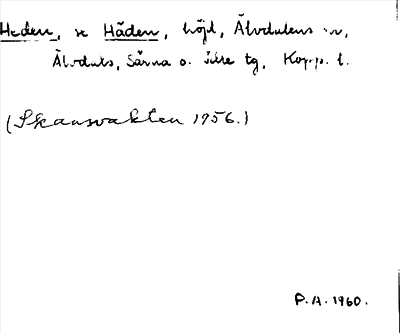 Heden, se Häden, höjd, Älvdalens sn,
Älvdals, Särna o. Idre tg, Kopp. l.
(Skansvakten 1956.)
P.A. 1960.